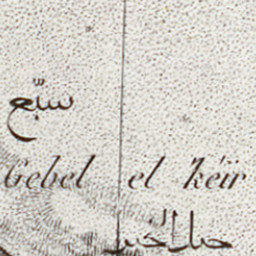 سبع
Gebel el Keïr
جبل الخير